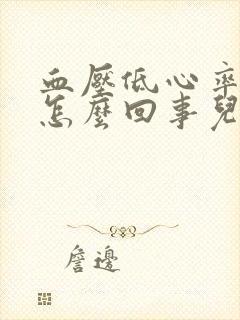 血壓低心率
怎麼回事兒
詹邊